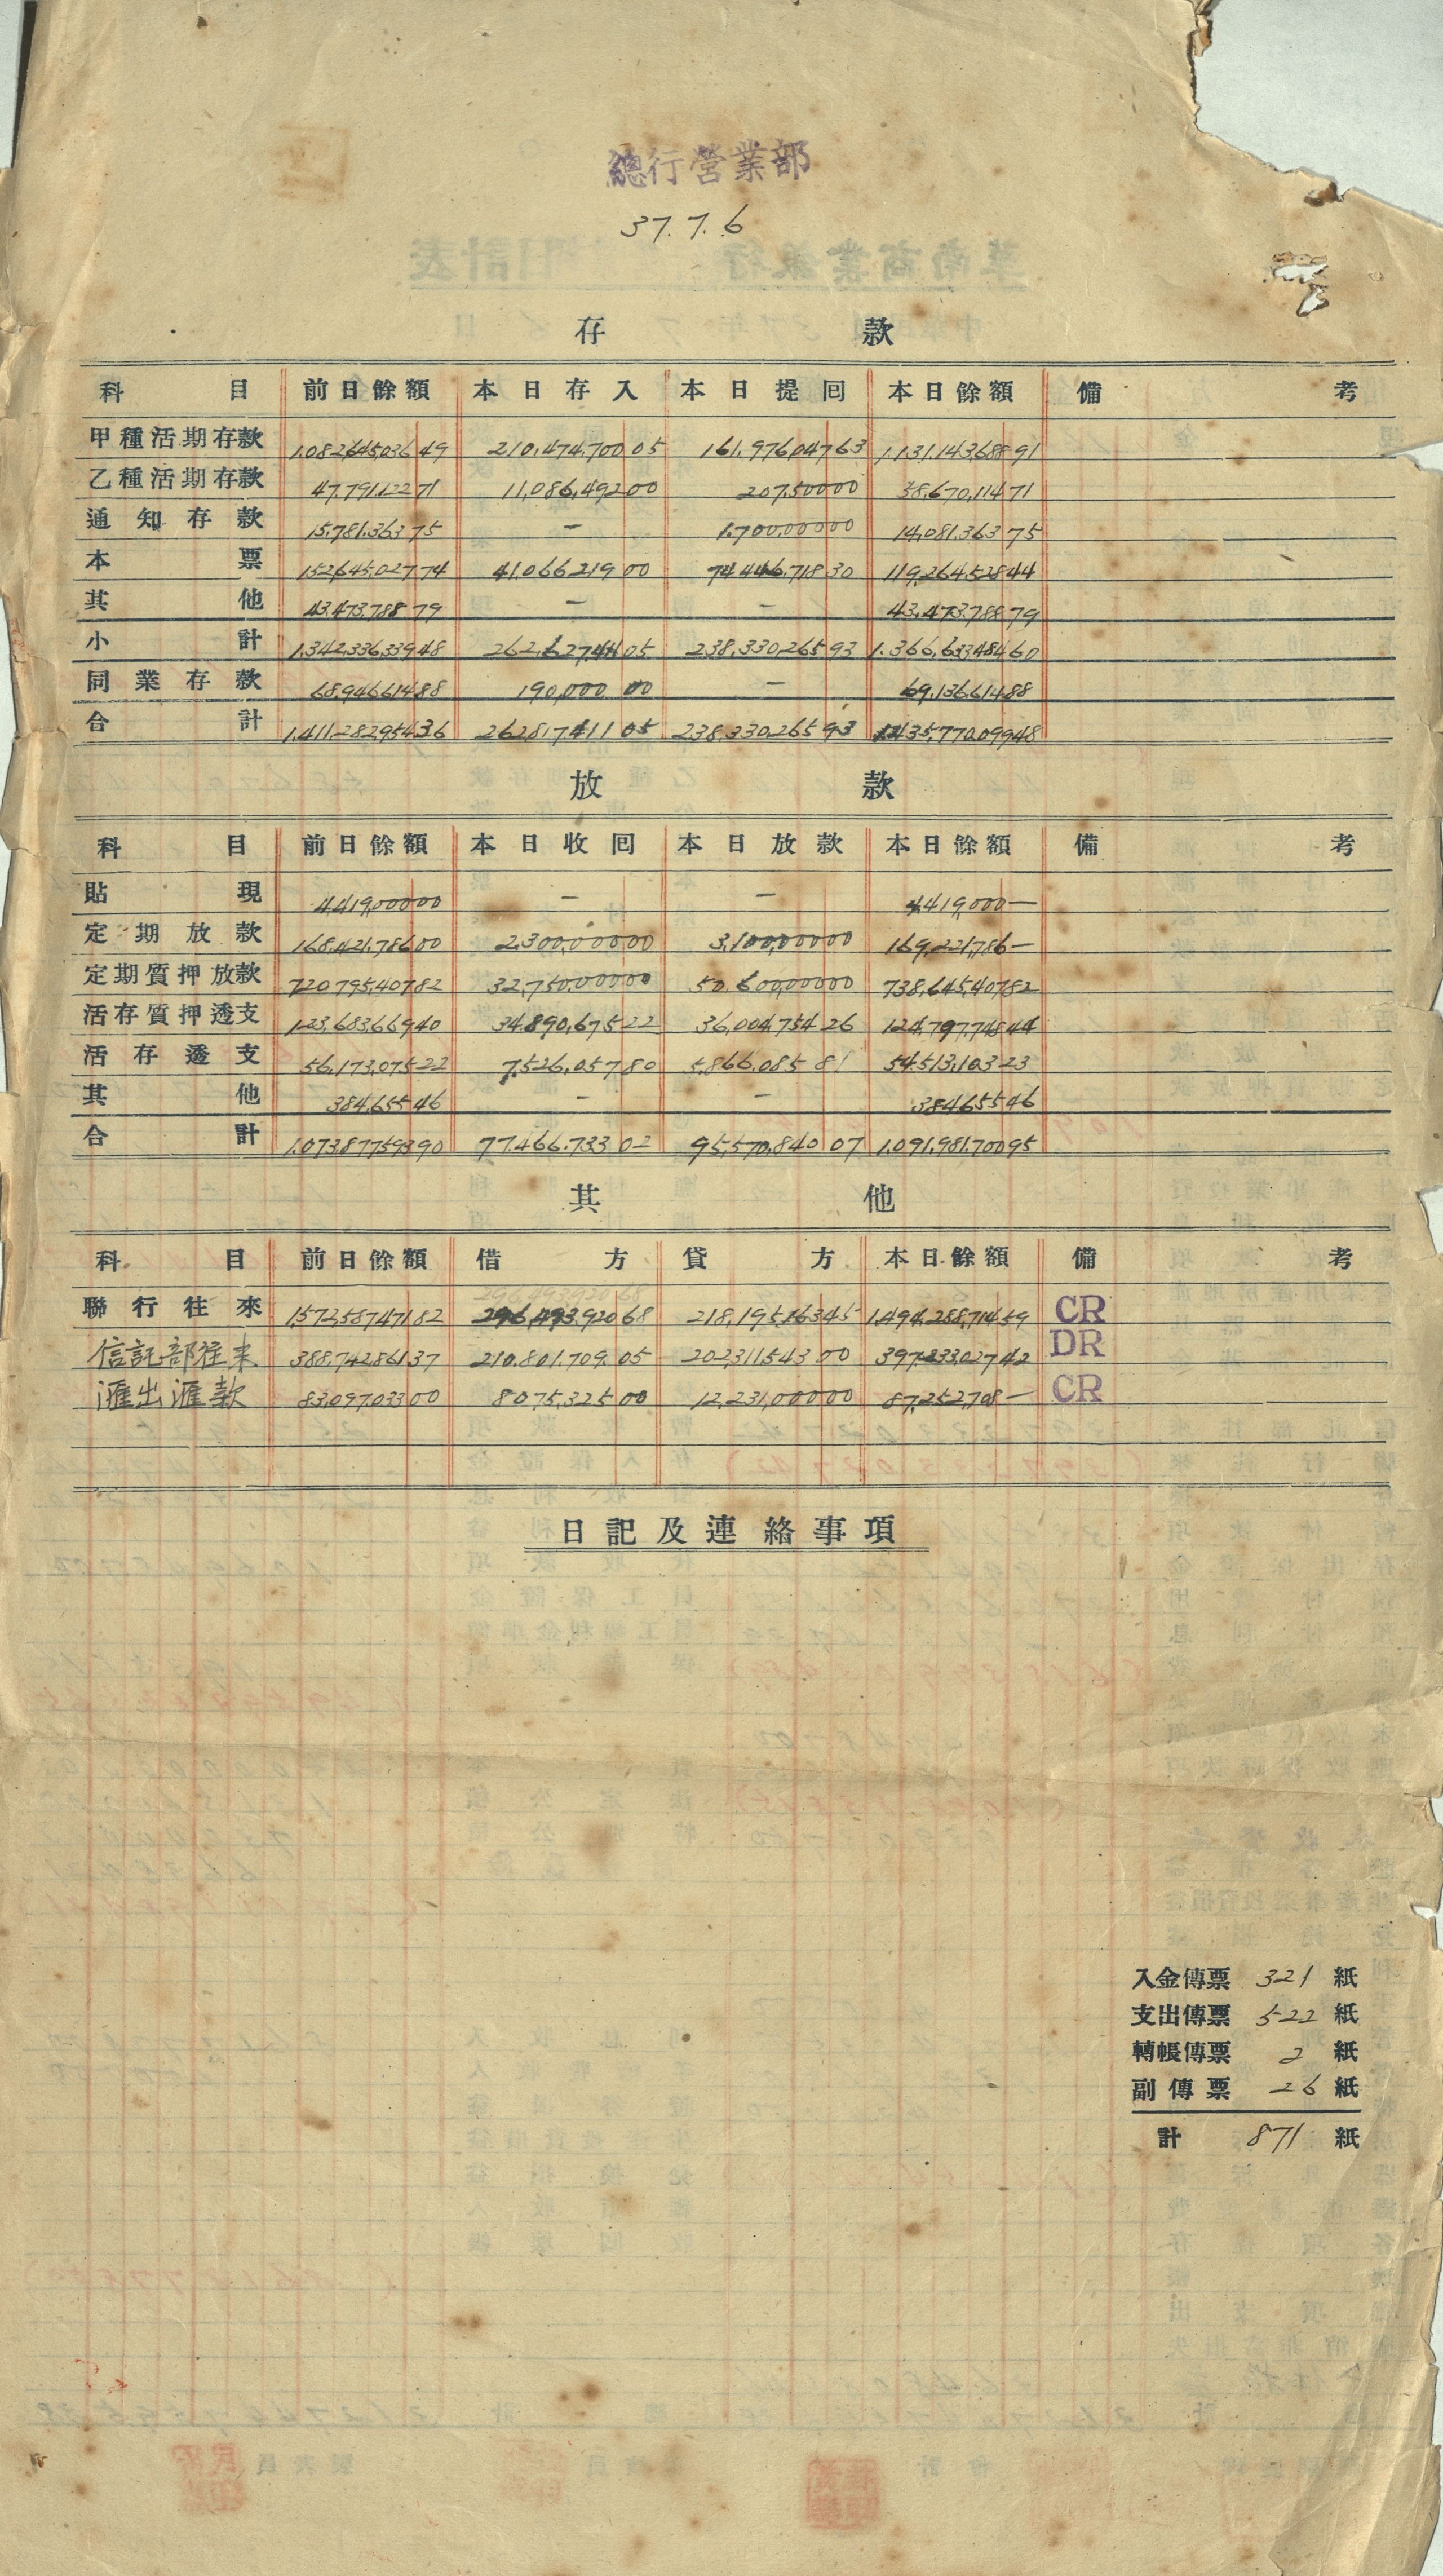 總行營業部
37. 7. 6
存款
科目 前日餘額 本日存入 本日提回 本日餘額 備考
甲種活期存款 1,082,645,036 49 210,474,700 05 161,976,047 63 1,131,143,688 91
乙種活期存款 47,791,122 71 11,086,492 00 207,500 00 38,670,114 71
通知存款 15,781,363 75 — 1,700,000 00 14,081,363 75
本票 152,645,027 74 41,066,219 00 74,446,718 30 119,264,528 44
其他 43,473,788 79 — — 43,473,788 79
小計 1,342,336,339 48 262,627,411 05 238,330,265 93 1,366,633,484 60
同業存款 68,946,614 88 190,000 00 — 69,136,614 88
合計 1,411,282,954 36 262,817,411 05 238,330,265 93 1,435,770,099 48
放款
科目 前日餘額 本日收回 本日放款 本日餘額 備考
貼現 4,419,000 00 — — 4,419,000 —
定期放款 168,421,786 00 2,300,000 00 3,100,000 00 169,221,786 —
定期質押放款 720,795,407 82 32,750,000 00 50,600,000 00 738,645,407 82
活存質押透支 123,683,669 40 34,890,675 22 36,004,754 26 124,797,748 44
活存透支 56,173,075 22 7,526,057 80 5,866,085 81 54,513,103 23
其他 384,655 46 — — 384,655 46
合計 1,073,877,593 90 77,466,733 02 95,570,840 07 1,091,981,700 95
其他
科目 前日餘額 借方 貸方 本日餘額 備考
聯行往來 1,572,587,471 82 296,493,920 68 218,195,163 45 1,494,288,714 59 CR
信託部往来 388,742,861 37 210,801,709 05 202,311,543 00 397,233,027 42 DR
滙出滙款 83,097,033 00 8,075,325 00 12,231,000 00 87,252,708 — CR
日記及連絡事項
入金傳票 321 紙
支出傳票 522 紙
轉帳傳票 2 紙
副傳票 26 紙
計 871 紙